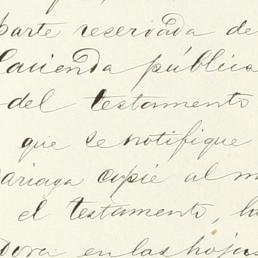 parte reservada de
Hacienda pública
del testamento
que se notifique
ariaga copié al m
el testamento, la
dora en las hojas